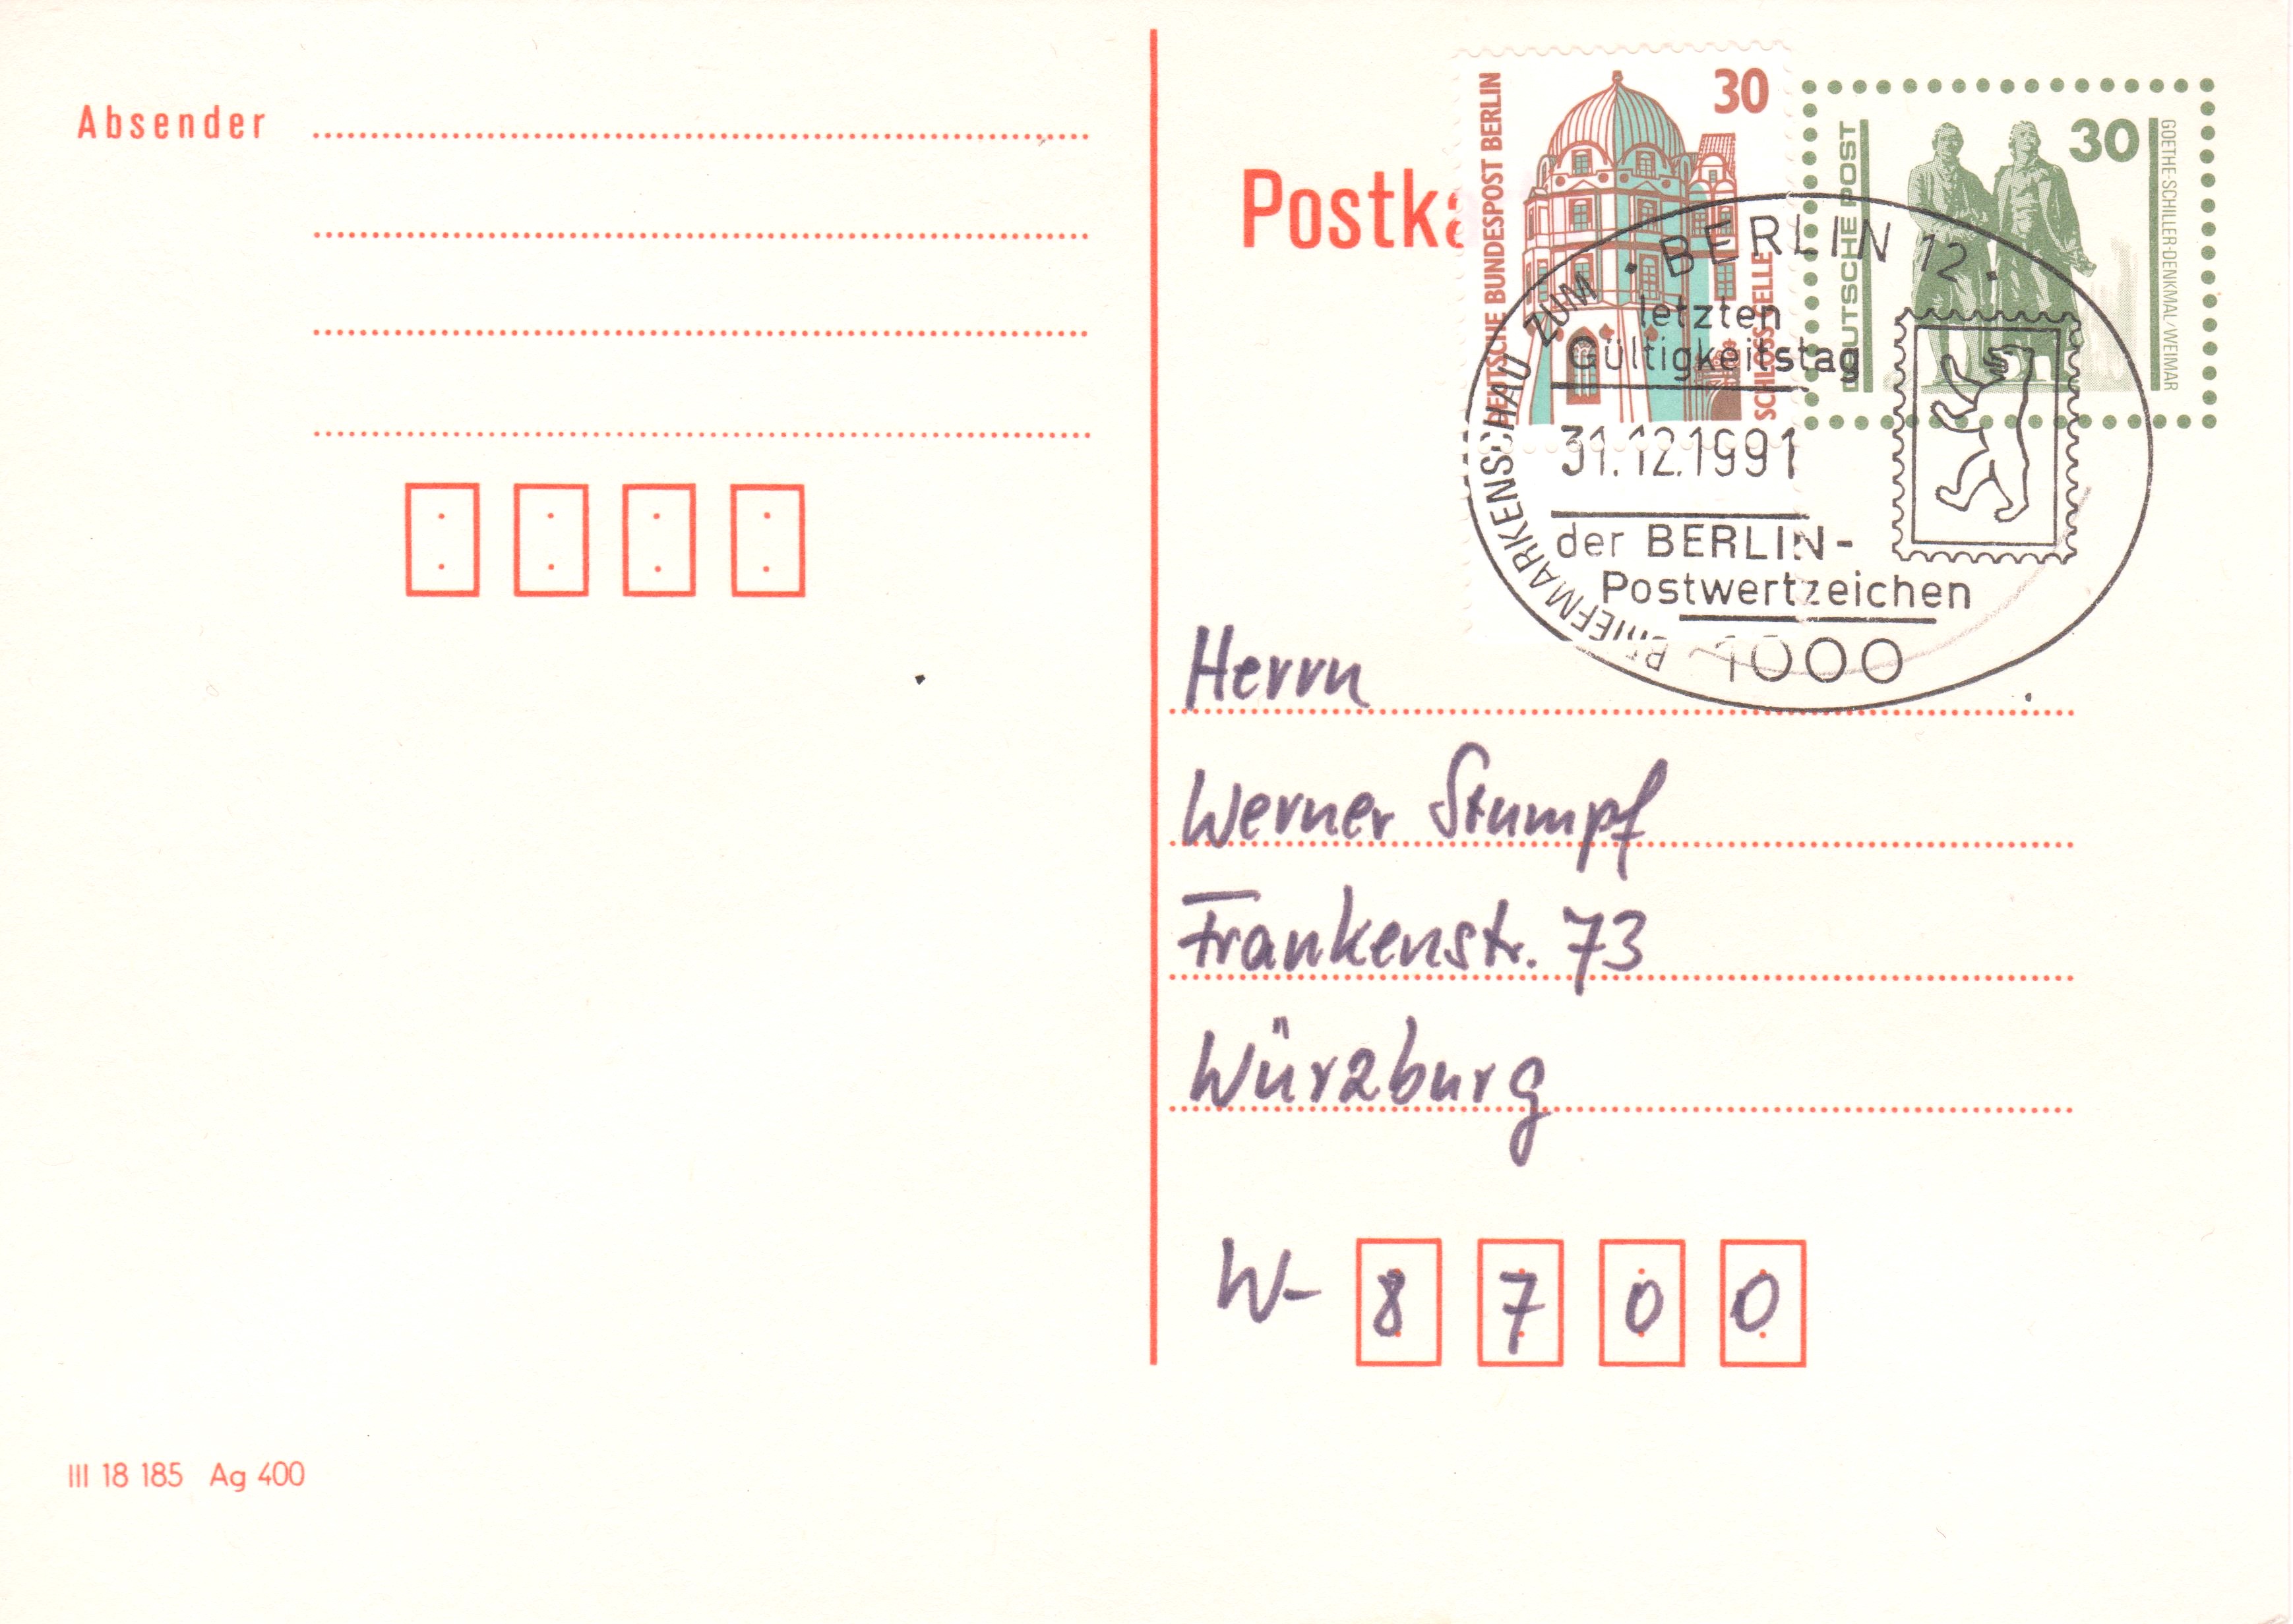 Absender
Postka
30
DEUTSCHE BUNDESPOST BERLIN
SCHLOSS CELLE
DEUTSCHE POST
30
GOETHE-SCHILLER-DENKMAL/WEIMAR
BERLIN 12
BRIEFMARKENSCHAU ZUM
letzten
Gültigkeitstag
31.12.1991
der BERLIN-
Postwertzeichen
1000
Herrn
Werner Stumpf
Frankenstr. 73
Würzburg
W- 8 7 0 0
III 18 185 Ag 400